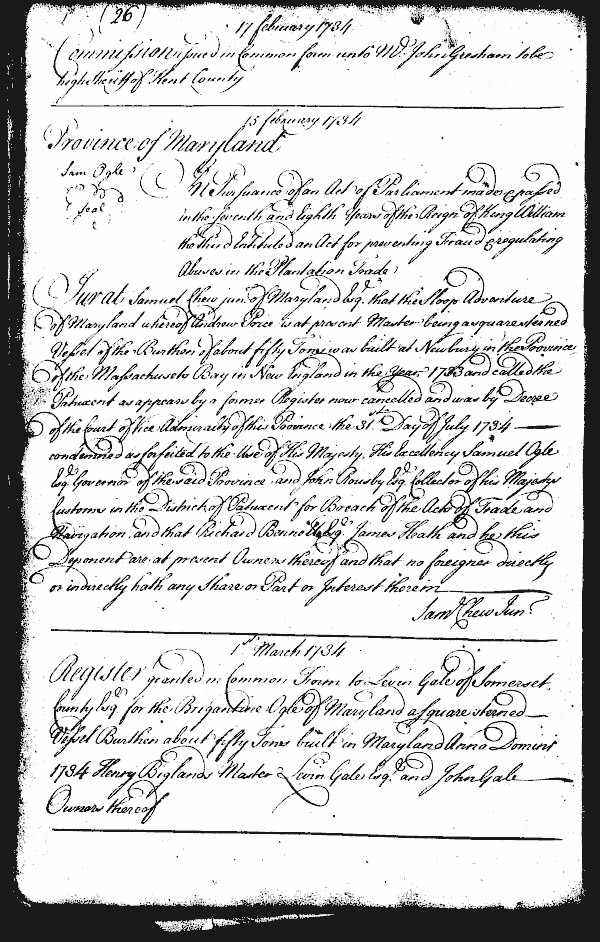 (26)
17 february 1734
Commission issued in Common form unto Mr. John Gresham to be
high Sheriff of Kent County
15 february 1734
Province of Maryland
Sam Ogle
Seal
In Pursuance of an Act of Parliament made & passed
in the Seventh and Eighth Years of the Reign of King William
the third Entituled an Act for preventing Fraud & regulating
Abuses in the Plantation Trade
Jurat Samuel Chew jun.r of Maryland Esq.r that the Sloop Adventure
of Maryland whereof Andrew Price is at present Master being a square sterned
Vessel of the Burthen of about fifty Tons was built at Newbury in the Province
of the Massachusets Bay in New England in the Year 1733 and called the
Patuxent as appears by a former Register now cancelled and was by Decree
of the Court of Vice Admiralty of this Province the 31st Day of July 1734
condemned as forfeited to the Use of His Majesty, His Excellency Samuel Ogle
Esq.r Governor of the said Province and John Rousby Esq.r Collector of his Majestys
Customs in the District of Patuxent for Breach of the Acts of Trade and
Navigation, and that Richard Bennett Esq.r James Heath and he this
Deponent are at present Owners thereof and that no foreigner directly
or indirectly hath any Share or Part or Interest therein
Sam.l Chew Jun.r
1st March 1734
Register granted in Common Form to Levin Gale of Somerset
County Esq.r for the Brigantine Ogle of Maryland a square sterned
Vessel Burthen about fifty Tons built in Maryland Anno Domini
1734 Henry Biglands Master Levin Gale Esq.r and John Gale
Owners thereof